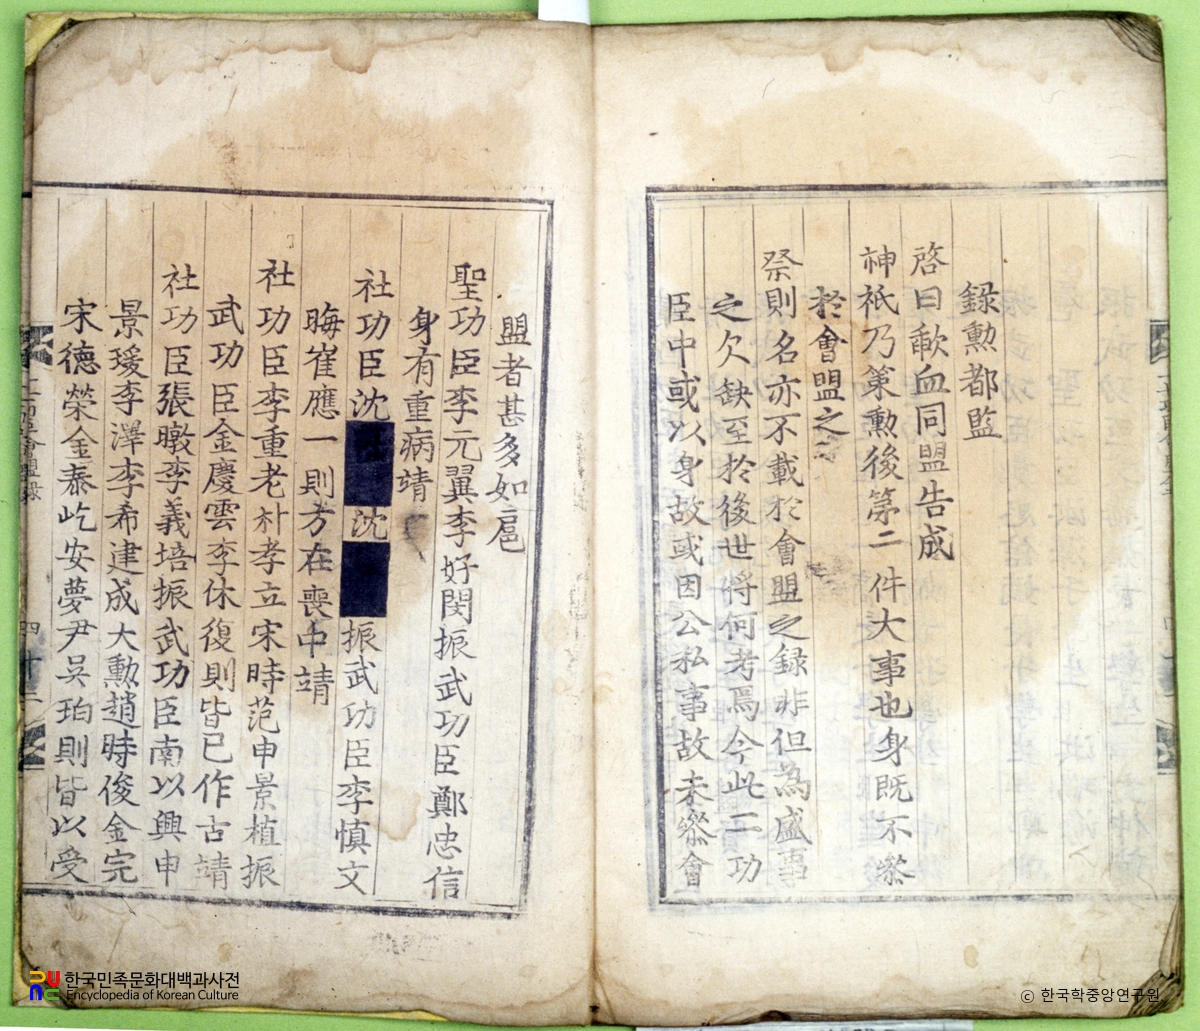 錄勲都監
啓曰歃血同盟告成
神祇乃第勲後第二件大事也身既不叅
於會盟之
祭則名亦不載於會盟之録非但為盛事
之欠缺至於後世將何考焉今此二功
臣中或以身故或因公私事故未叅會
盟者甚多如扈
聖功臣李元翼李好閔振武功臣鄭忠信
身有重病靖
社功臣沈 沈 振武功臣李慎文
晦崔應一則方在喪中靖
社功臣李重老朴孝立宋時范申景植振
武功臣金慶雲李休復則皆已作古靖
社功臣張暾李義培振武功臣南以興申
景瑗李澤李希建成大勲趙時俊金完
宋德榮金泰屹安夢尹吳珀則皆以受
會盟錄
四十二
한국민족문화대백과사전
Encyclopedia of Korean Culture
ⓒ 한국학중앙연구원